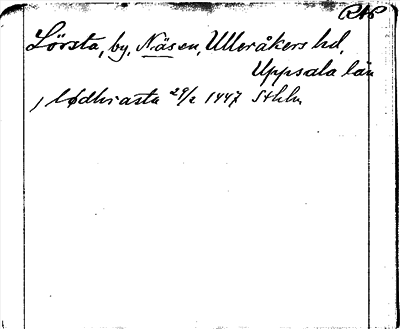 RAP
Lörsta, by, Näsen, Ulleråkers hd,
Uppsala län
, lødhrasta 29/2 1447 Sthlm